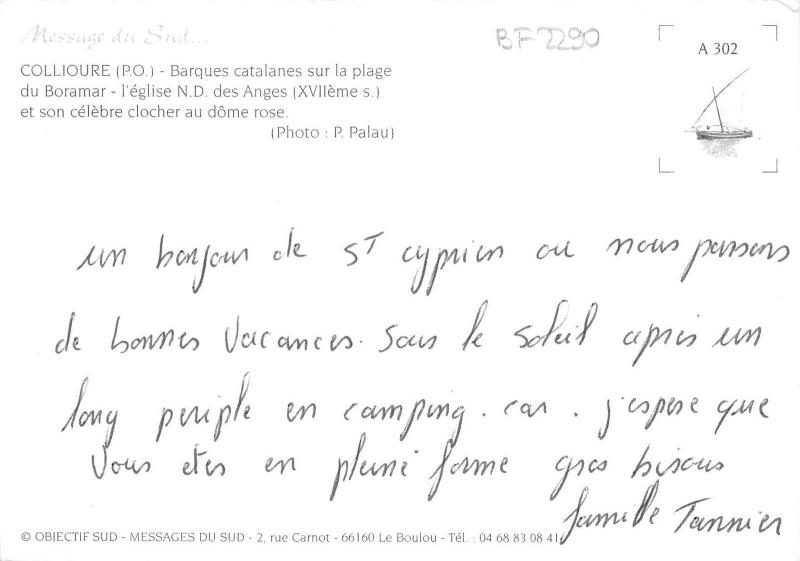 Message du Sud...
BF 2290
A 302
COLLIOURE (P.O.) - Barques catalanes sur la plage
du Boramar - l'église N.D. des Anges (XVIIème s.)
et son célèbre clocher au dôme rose.
(Photo : P. Palau)
un bonjour de ST cyprien ou nous passons
de bonnes vacances. sous le soleil après un
long periple en camping. car. j'espere que
vous etes en pleine forme gros bisous
famille Tannier
© OBJECTIF SUD - MESSAGES DU SUD - 2, rue Carnot - 66160 Le Boulou - Tél. : 04 68 83 08 41